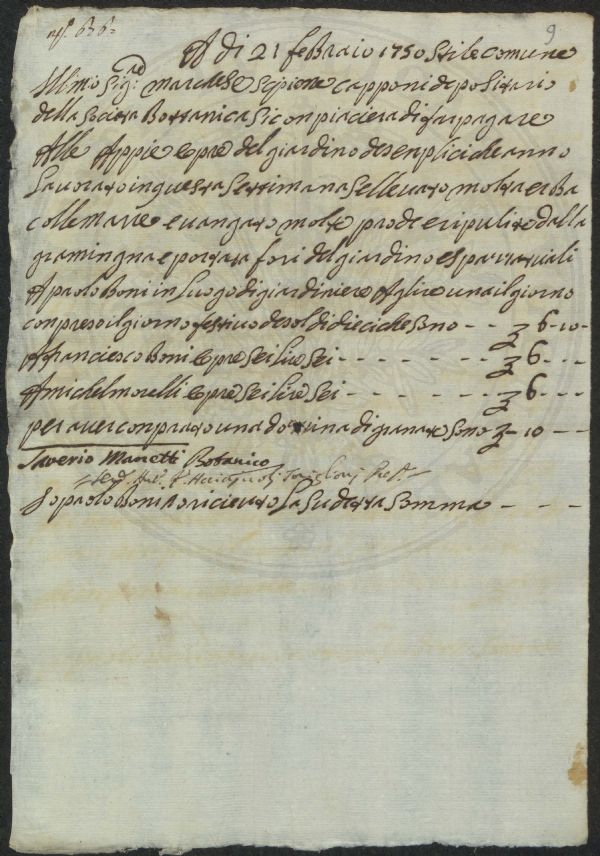 9
A di 21 febbraio 1750 Stile comune
Ill.mo Sig.re marchese Scipione capponi depositario
della Societa Bottanica Si conpiacera di far pagare
Alle Appie opre del giardino de senplici che anno
Lavorato in questa Settimana Sellevato molta erba
colle marre e vangato molte prode e ripulite dalla
gramingna e portata fori del giardino e spazzata i viali
A paolo Boni in Luogo di giardiniere A lire una il giorno
conpreso il giorno festivo de soldi dieci che Sono - - 6 - 10 -
A franciesco Boni opre Sei Lire Sei - - - - - - - 6 - - -
A michel morelli opre Sei Lire Sei - - - - - - 6 - - -
per aver conprato una dozzina di granate Sono - 10 - - -
Saverio Manetti Botanico
Io paolo Boni o riciuto La Sudetta Somma - - -